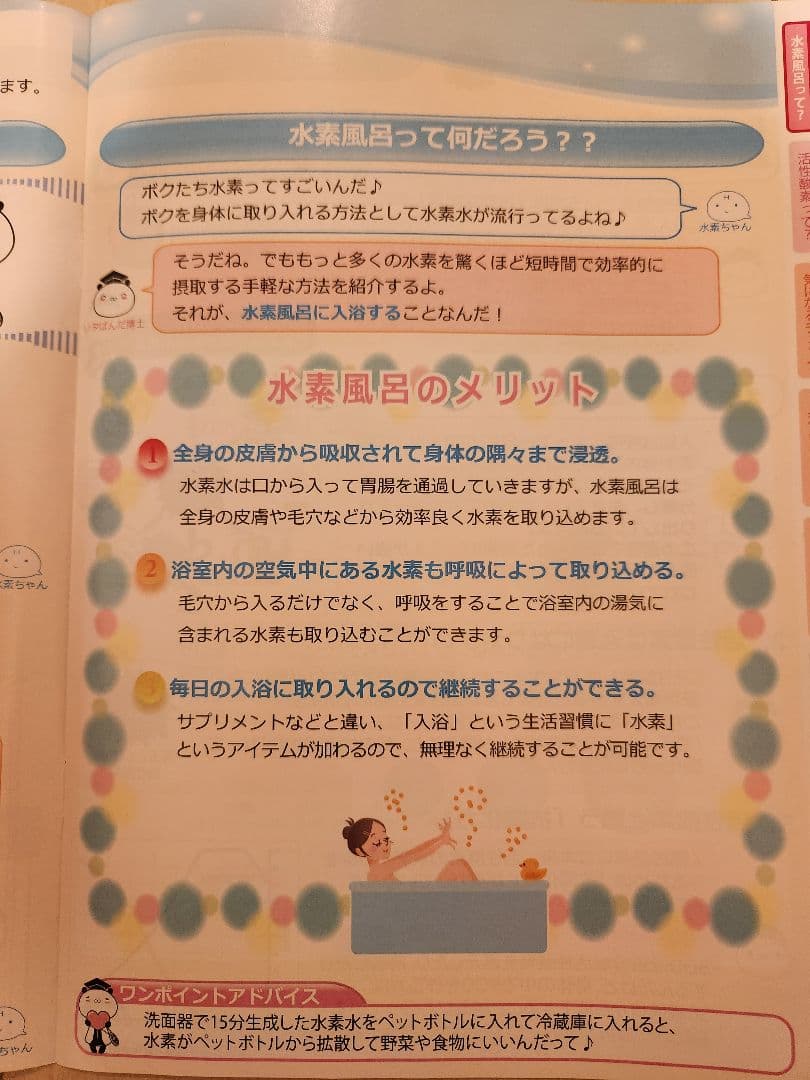 ます。
水素風呂って何だろう？？
水素風呂って？
ボクたち水素ってすごいんだ♪
ボクを身体に取り入れる方法として水素水が流行ってるよね♪
水素ちゃん
活性酸素って？
そうだね。でももっと多くの水素を驚くほど短時間で効率的に
摂取する手軽な方法を紹介するよ。
それが、水素風呂に入浴することなんだ！
ぱんだ博士
水素風呂のメリット
1 全身の皮膚から吸収されて身体の隅々まで浸透。
水素水は口から入って胃腸を通過していきますが、水素風呂は
全身の皮膚や毛穴などから効率良く水素を取り込めます。
2 浴室内の空気中にある水素も呼吸によって取り込める。
毛穴から入るだけでなく、呼吸をすることで浴室内の湯気に
含まれる水素も取り込むことができます。
素ちゃん
3 毎日の入浴に取り入れるので継続することができる。
サプリメントなどと違い、「入浴」という生活習慣に「水素」
というアイテムが加わるので、無理なく継続することが可能です。
ワンポイントアドバイス
洗面器で15分生成した水素水をペットボトルに入れて冷蔵庫に入れると、
水素がペットボトルから拡散して野菜や食物にいいんだって♪
ちゃん